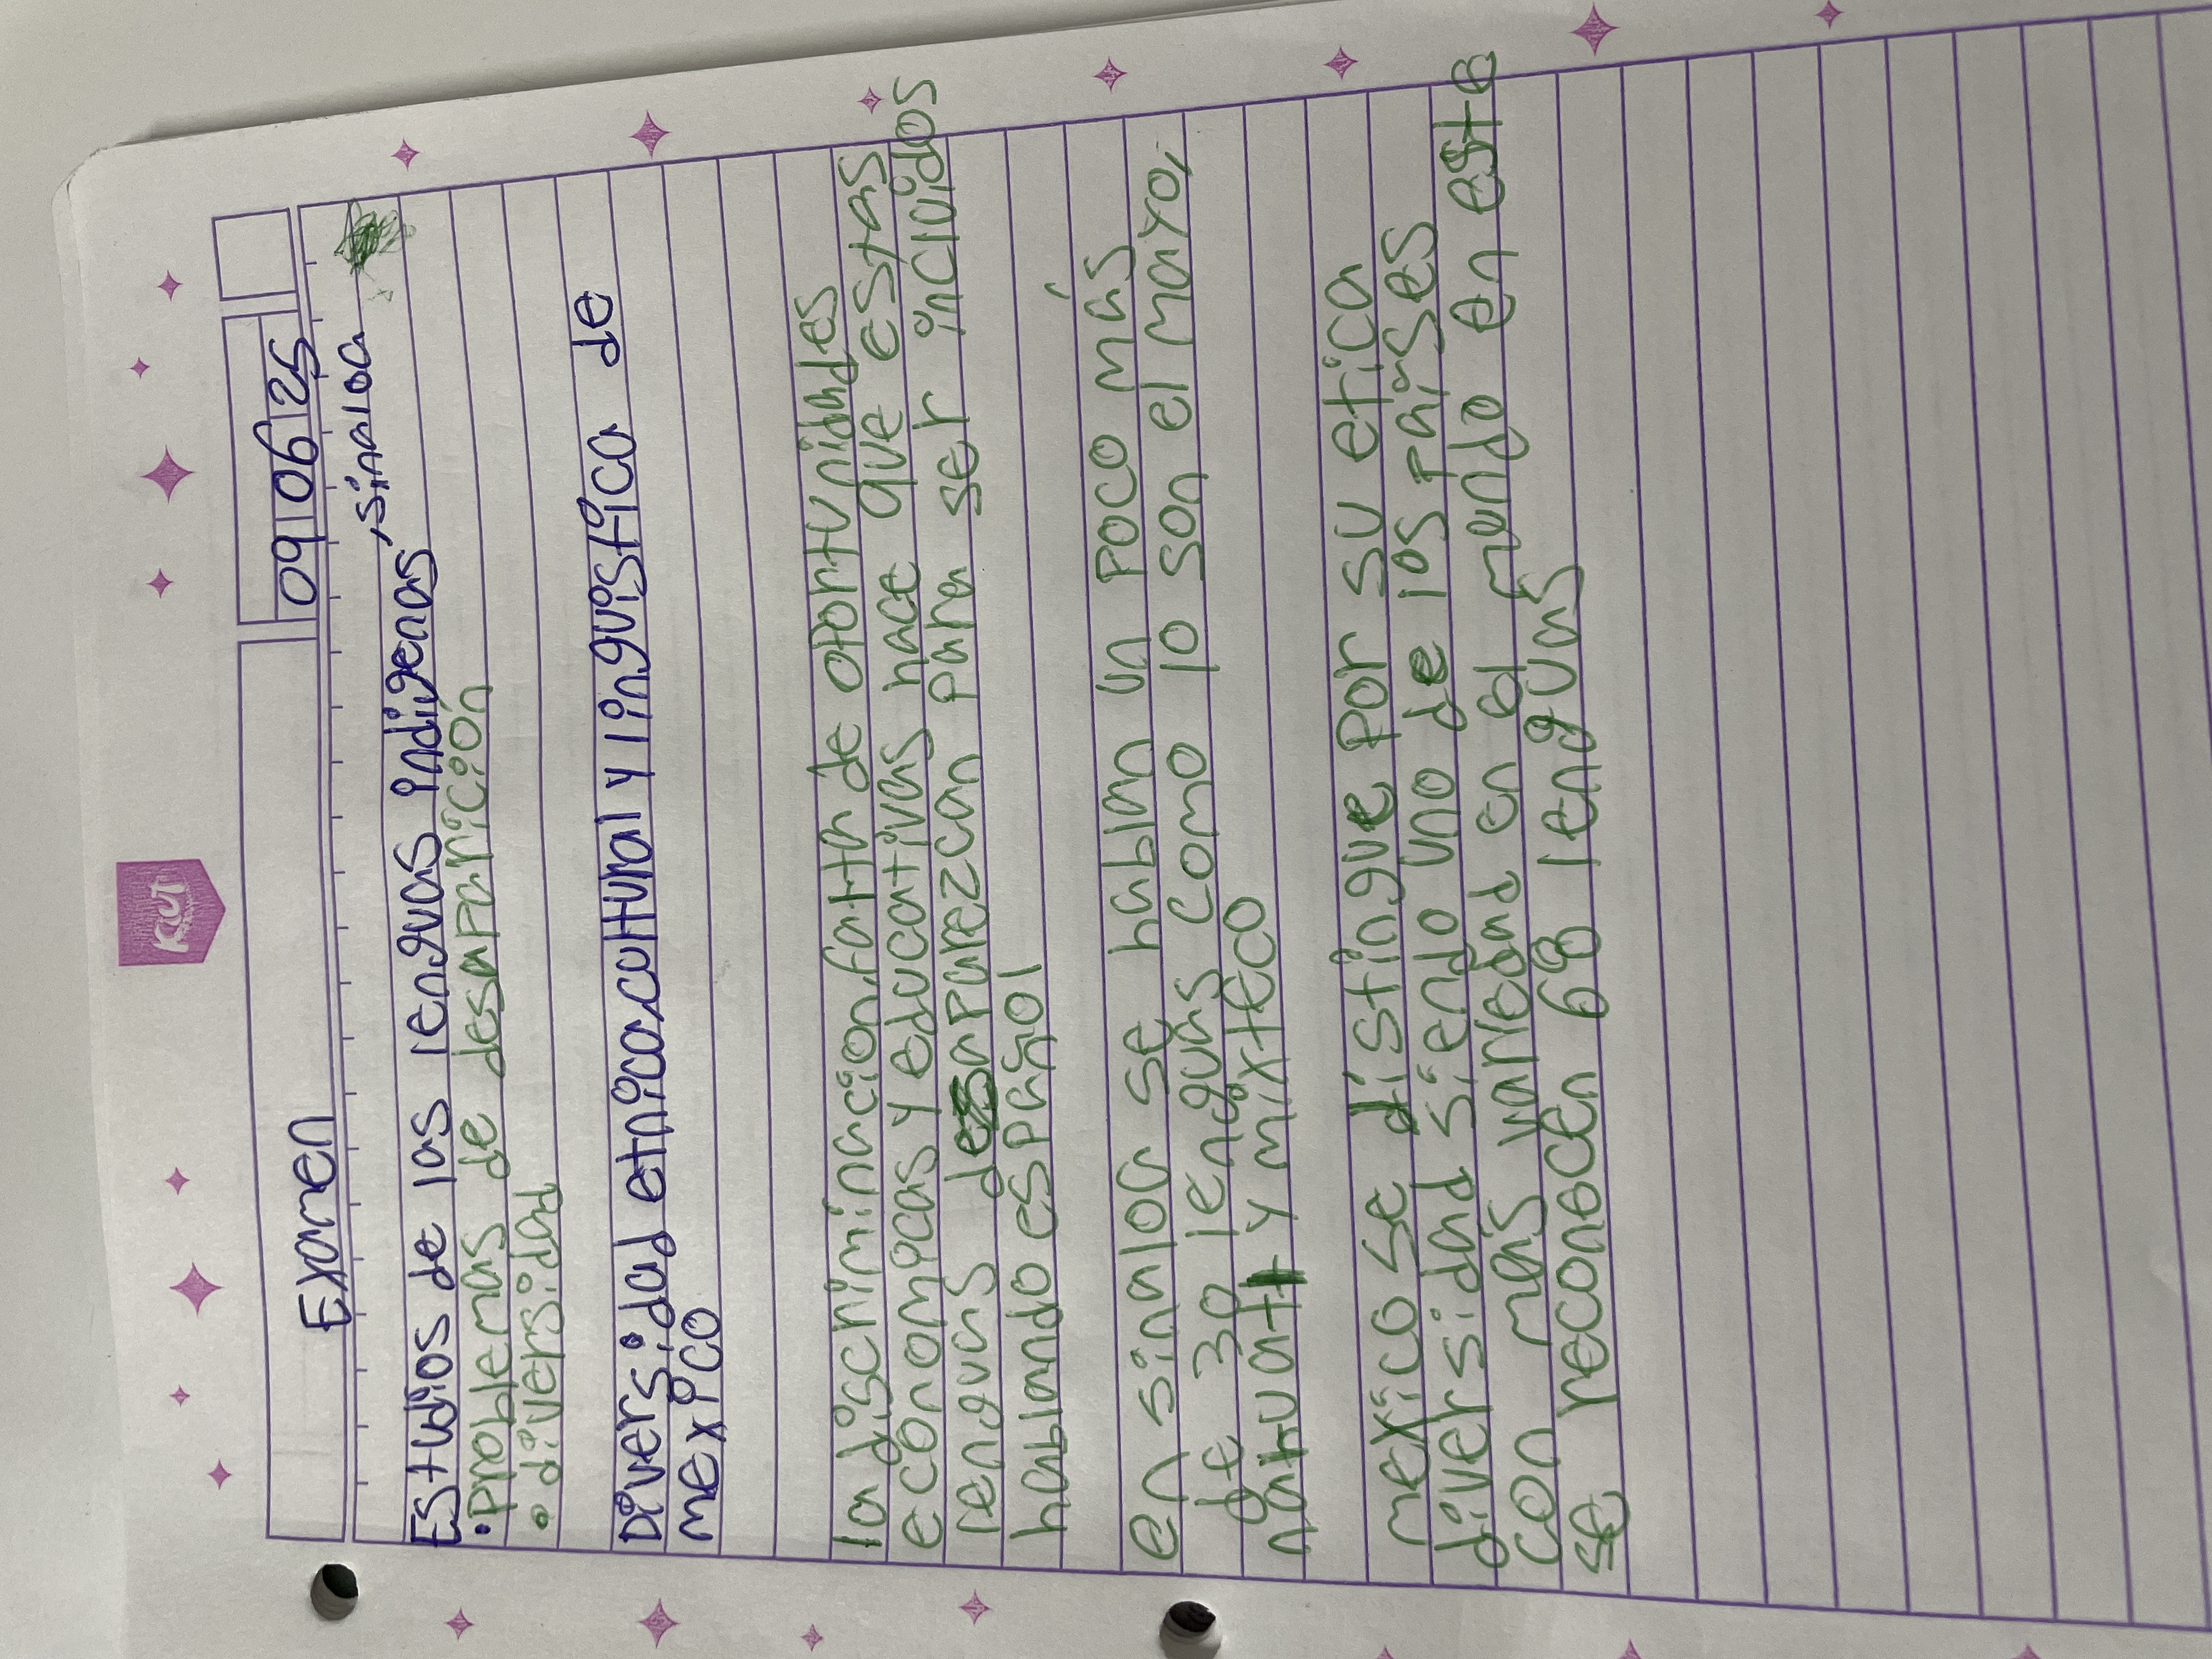 Kut
Examen
09 06 25
Estudios de las lenguas indigenas, sinaloa
• Problemas de desaparición
• diversidad
Diversidad etnica, cultural y linguistica de
mexico
la discriminacion, falta de oportunidades
economicas y educativas hace que estas
lenguas desaparezcan para ser incluidos
hablando español
en sinaloa se hablan un poco más
de 30 lenguas como lo son el mayo,
nahuatl y mixteco
mexico se distingue por su etica
diversidad siendo uno de los paises
con más variedad en el mundo en este
se reconocen 68 lenguas